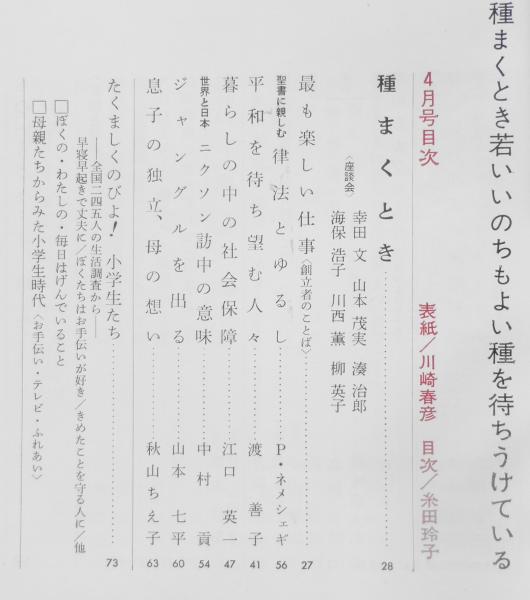 種まくとき若いいのちもよい種を待ちうけている
4月号目次 表紙/川崎春彦 目次/糸田玲子
種まくとき……28
〈座談会〉 幸田 文 山本茂実 湊 治郎
海保浩子 川西 薫 柳 英子
最も楽しい仕事〈創立者のことば〉……27
聖書に親しむ 律法とゆるし……P・ネメシェギ 56
平和を待ち望む人々……渡 善子 41
暮らしの中の社会保障……江口英一 47
世界と日本 ニクソン訪中の意味……中村 貢 54
ジャングルを出る……山本七平 60
息子の独立、母の想い……秋山ちえ子 63
たくましくのびよ! 小学生たち……73
――全国二四五人の生活調査から――
早寝早起きで丈夫に/ぼくたちはお手伝いが好き/きめたことを守る人に/他
□ぼくの・わたしの・毎日はげんでいること
□母親たちからみた小学生時代〈お手伝い・テレビ・ふれあい〉